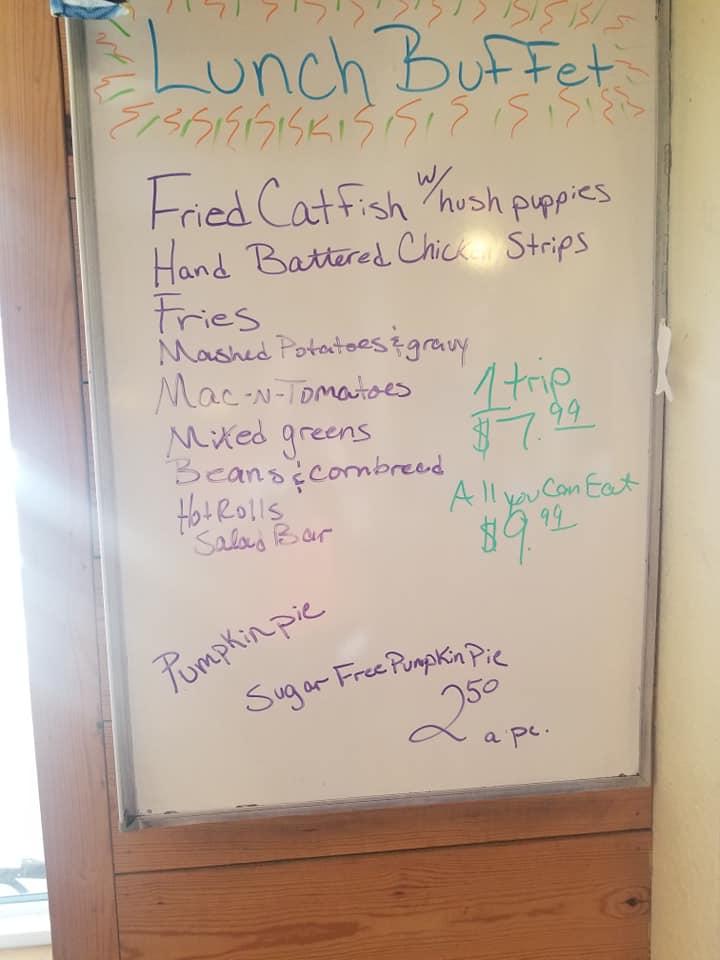 Lunch Buffet
Fried Catfish w/hush puppies
Hand Battered Chicken Strips
Fries
Mashed Potatoes & gravy
Mac-N-Tomatoes
Mixed greens
Beans & cornbread
Hot Rolls
Salad Bar
1 trip
$7.99
All you Can Eat
$9.99
Pumpkin pie
Sugar Free Pumpkin Pie
2 50
a pc.